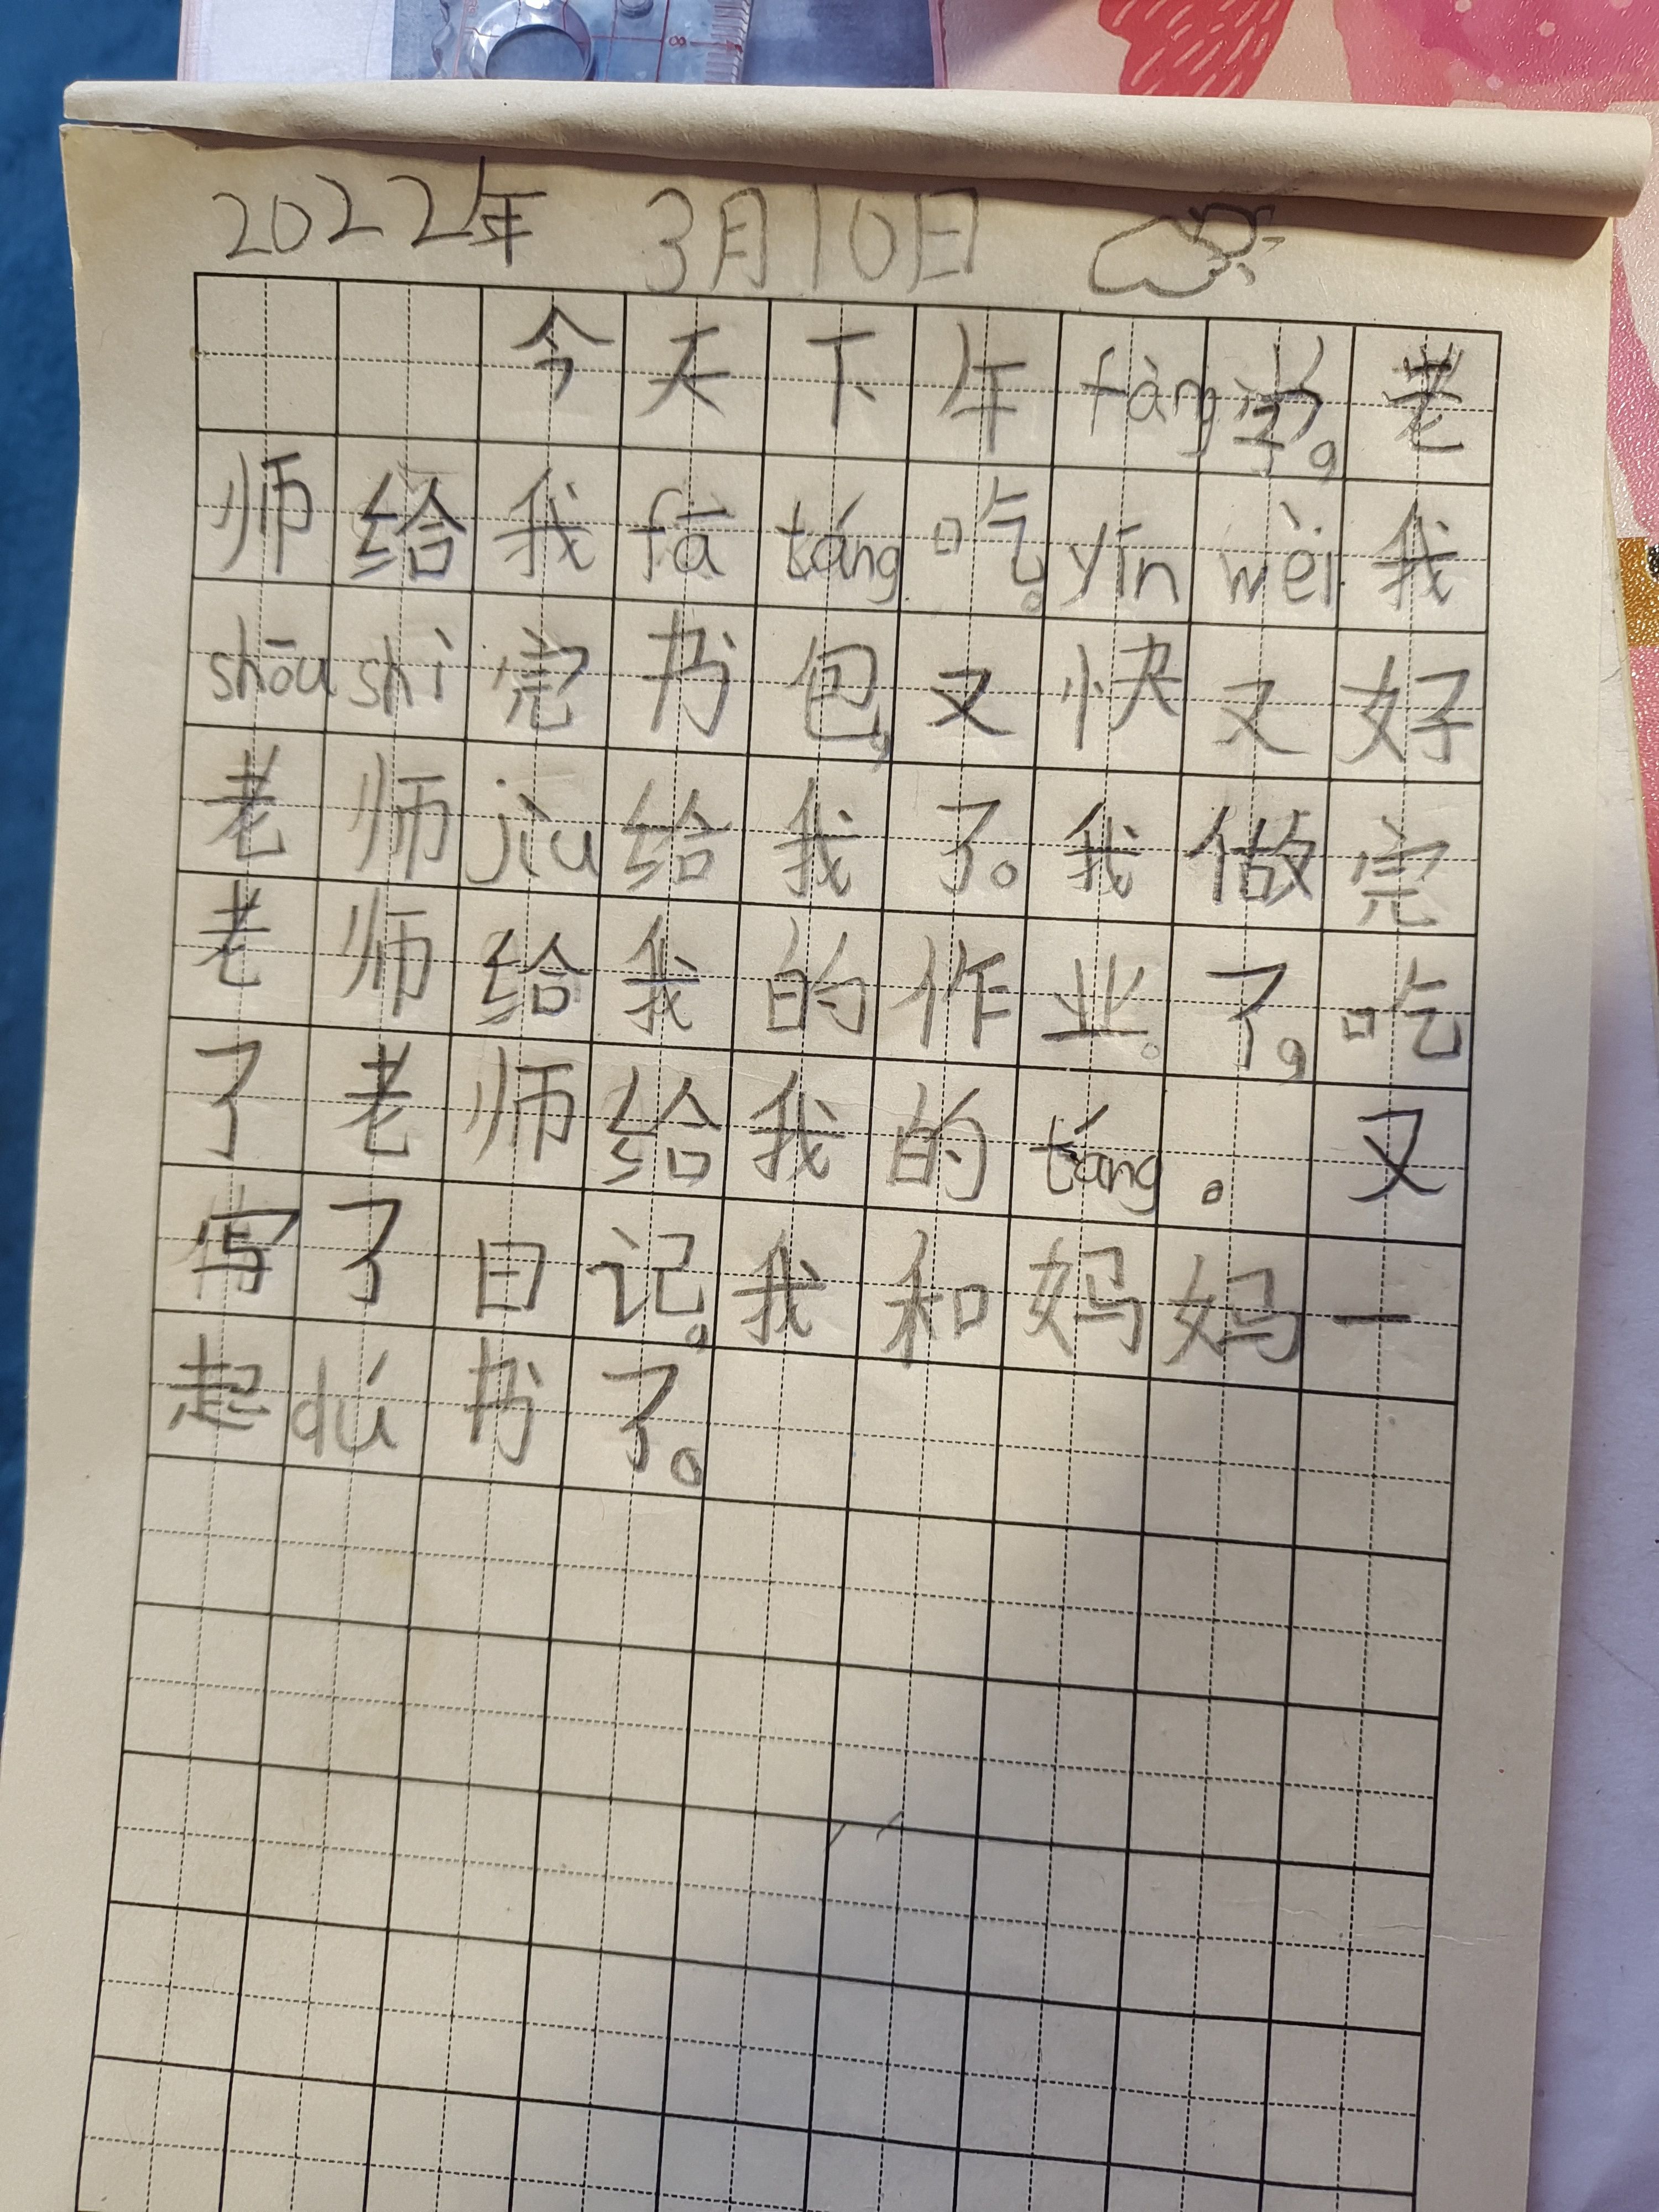 8
2022年 3月10日
今天下午fàng学，老
师给我fā táng吃。yīn wèi我
shōu shi完书包，又快又好
老师jiù给我了。我做完
老师给我的作业。了，吃
了老师给我的táng。又
写了日记，我和妈妈一
起dú书了。